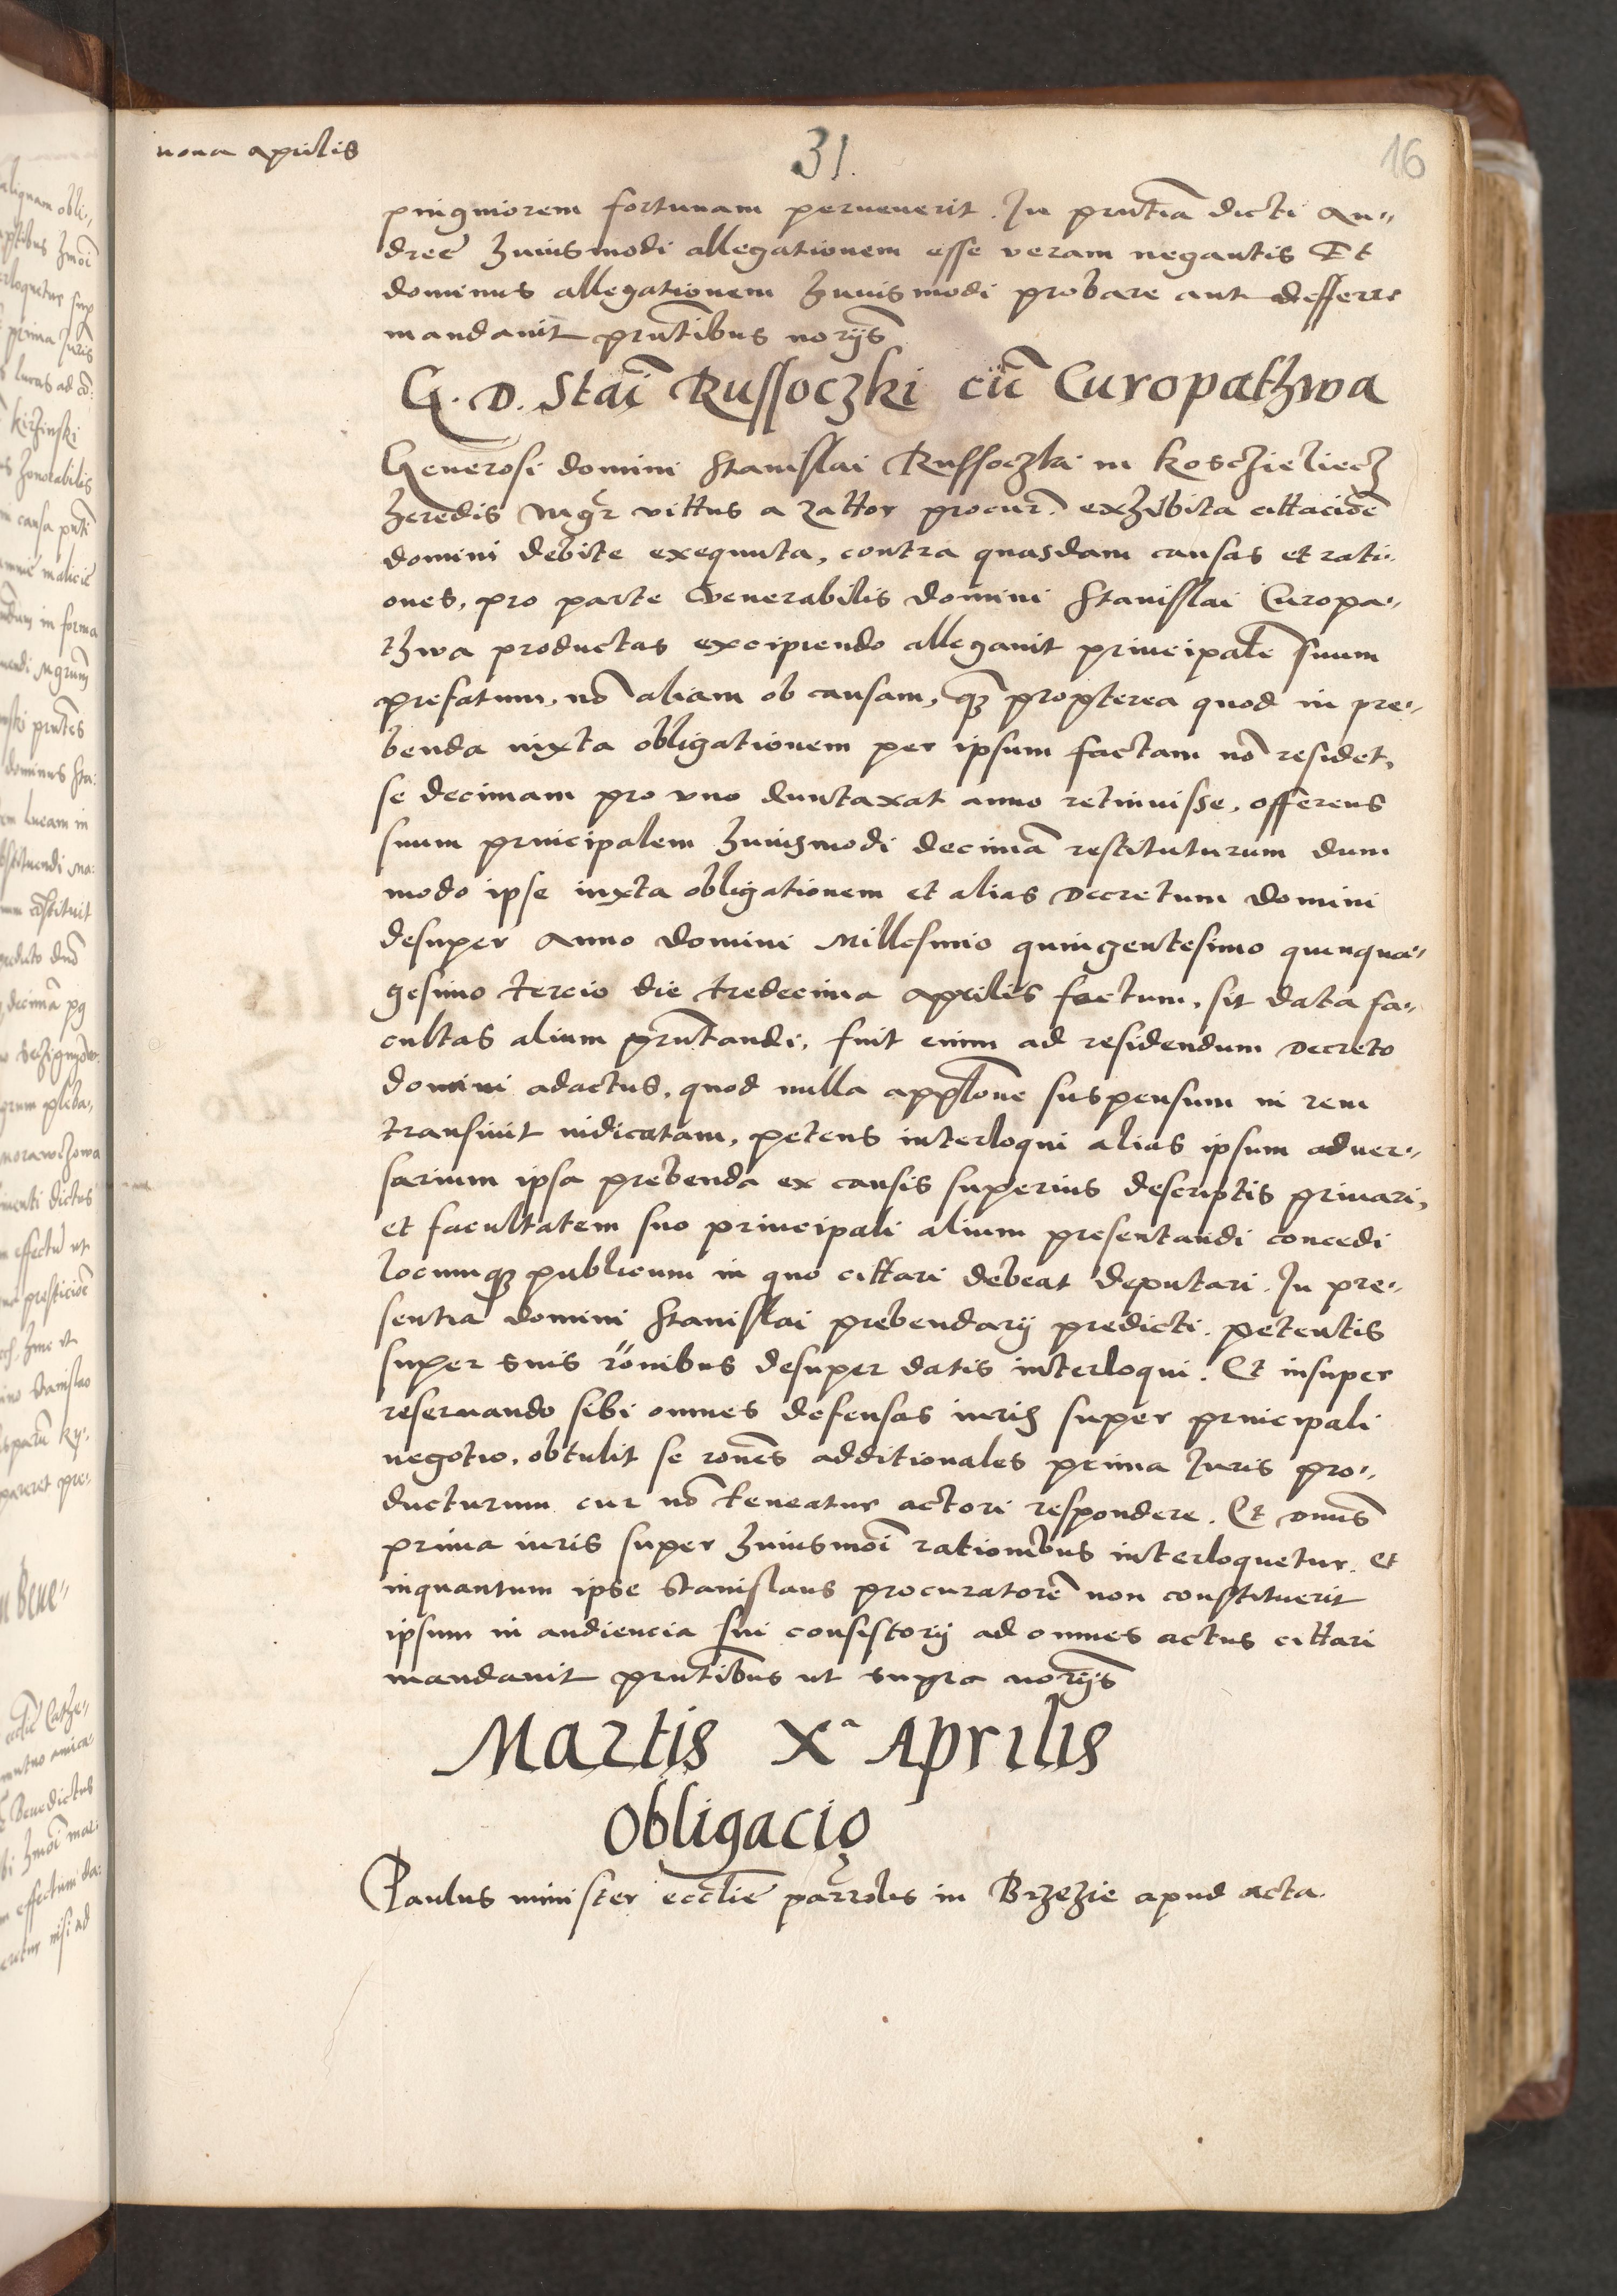 nona aprilis
31.
16
pinguiorem fortunam peruenerit. In prñtia dicti An-
dree huiusmodi allegationem esse veram negantis Et
dominus allegationem huiusmodi probare aut defferre
mandauit prñtibus norijs
G. D. Stai Russoczki cũ Curopathwa
Generosi domini Stanislai Russoczki in Kosczieliecz
heredis Mgr vittus a Zattor procur. exhibita cittacioē
domini debite exequuta, contra quasdam causas et rati-
ones, pro parte Venerabilis domini Stanislai Curopa-
thwa productas excipiendo allegauit principalē suum
prefatum, nō aliam ob causam, qz propterea quod in pre-
benda iuxta obligationem per ipsum factam nō residet,
se decimam pro vno duntaxat anno retinuisse, offerens
suum principalem huiusmodi decimā restituturum dum
modo ipse iuxta obligationem et alias Decretum domini
desuper Anno domini Millesimo quingentesimo quinqua-
gesimo tercio die tredecima Aprilis factum, sit data fa-
cultas alium prñtandi, fuit enim ad residendum Decreto
domini adactus, quod nulla applōne suspensum in rem
transiuit iudicatam, petens interloqui alias ipsum aduer-
sarium ipsa prebenda ex causis superius descriptis priuari,
et facultatem suo principali alium presentandi concedi
locumqz publicum in quo cittari debeat deputari. In pre-
sentia domini Stanislai prebendarij predicti. petentis
super suis rōnibus desuper datis interloqui. Et insuper
reseruando sibi omnes defensas iuris super principali
negotio, obtulit se ronēs additionales prima Iuris pro-
ducturum cur nō teneatur actori respondere. Et dnus
prima iuris super huiusmōi rationibus interloquetur. Et
inquantum ipse Stanislaus procuratorē non constituerit
ipsum in audiencia sui consistorij ad omnes actus cittari
mandauit prñtibus ut supra norijs
Martis Xª Aprilis
Obligacio
Paulus minister eccliē parrolis in Brzezie apud acta.